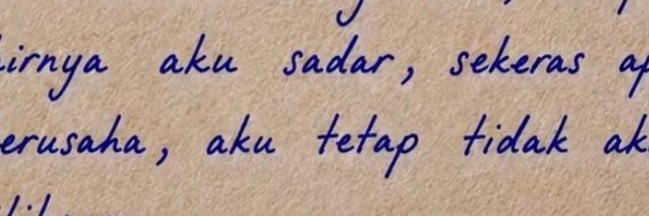 irnya aku sadar, sekeras ap
erusaha, aku tetap tidak ak